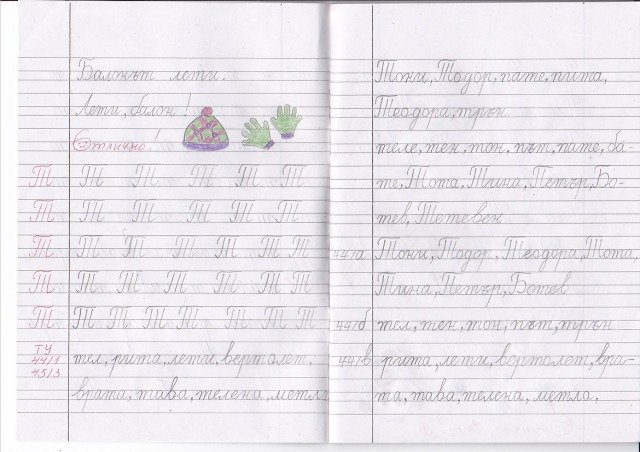 Балонът лети.
Лети, балон!
Отлично!
Т Т Т Т Т Т
Т Т Т Т Т Т
Т Т Т Т Т Т Т
Т Т Т Т Т Т Т
Т Т Т Т Т Т Т Т
ТУ
44/1
45/3
тел, рита, лети, вертолет,
врата, тава, телена, метла
Тони, Тодор, пате, пита,
Теодора, трън
теле, тен, тон, път, пате, ба-
те, Тота, Тина, Петър, Бо-
тев, Тетевен
44/а Тони, Тодор, Теодора, Тота,
Тина, Петър, Ботев
44/б тел, тен, тон, път, трън
44/в рита, лети, вертолет, вра-
та, тава, телена, метла,